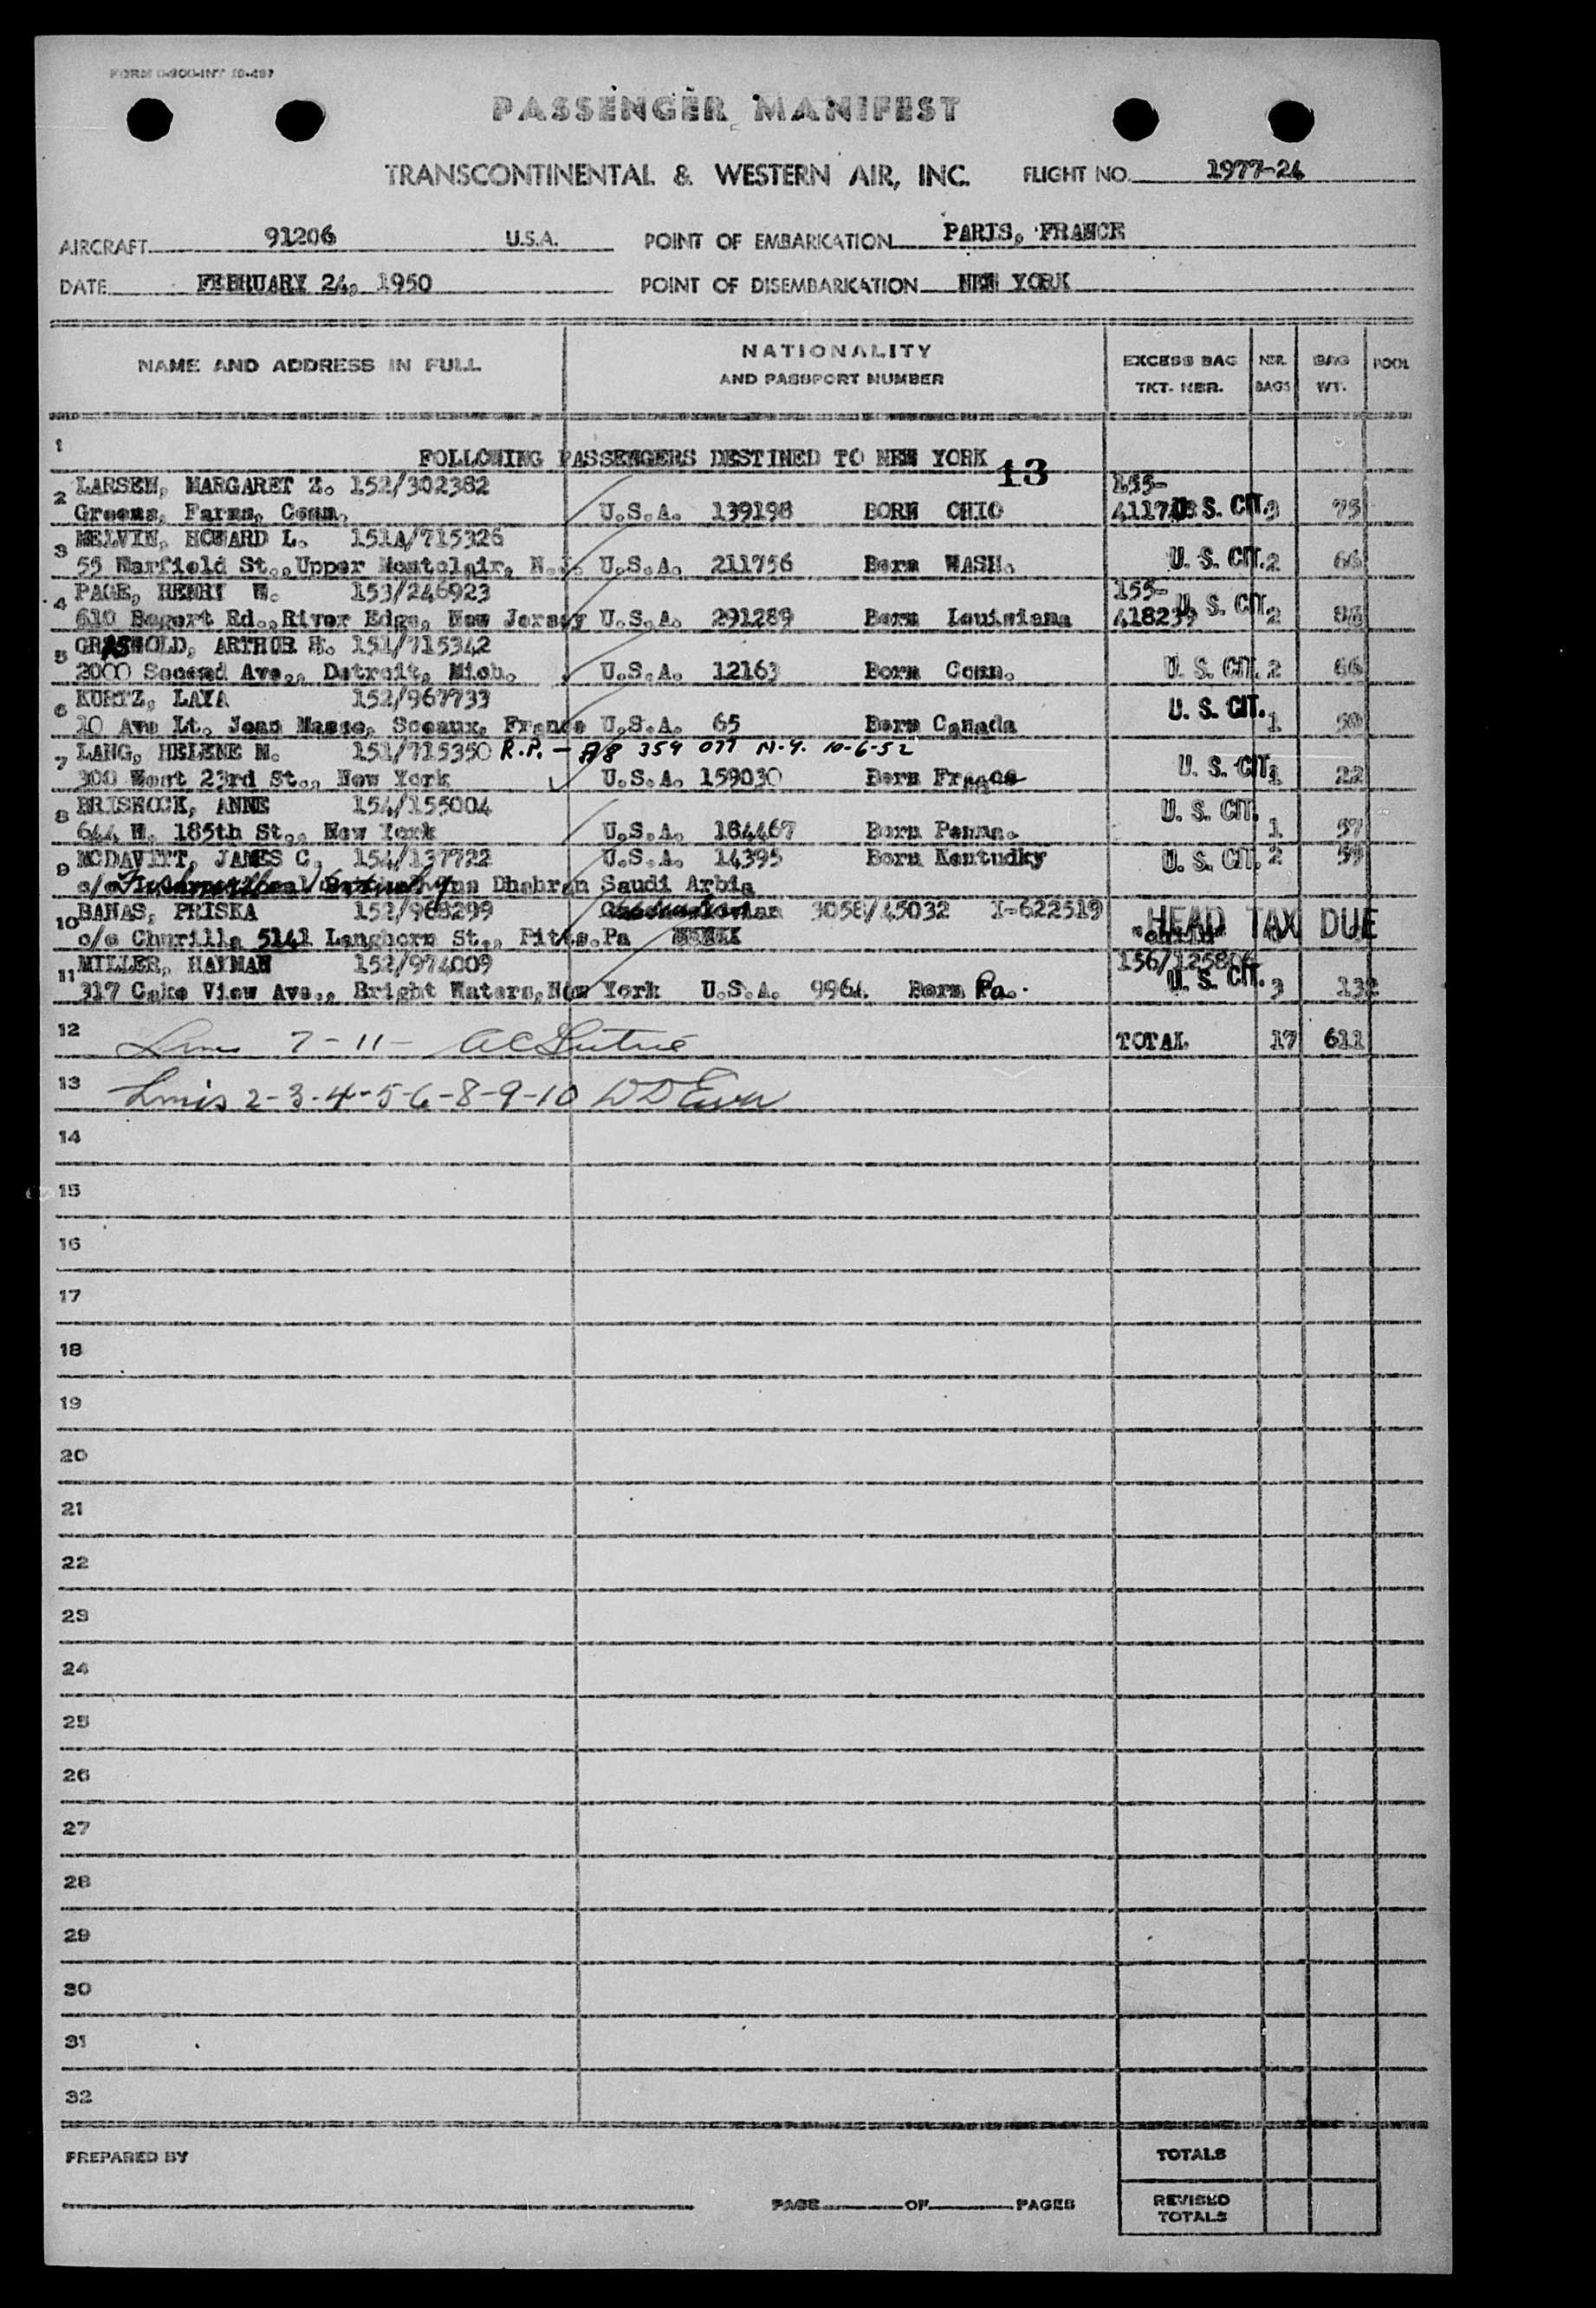 FORM
PASSENGER MANIFEST
TRANSCONTINENTAL & WESTERN AIR, INC. FLIGHT NO. 1977-24
AIRCRAFT 91206 U.S.A. POINT OF EMBARKATION PARIS, FRANCE
DATE FEBRUARY 24, 1950 POINT OF DISEMBARKATION NEW YORK
NAME AND ADDRESS IN FULL
NATIONALITY
AND PASSPORT NUMBER
EXCESS BAG
TKT. NBR.
NBR.
BAGS
BAG
WT.
POOL
1
FOLLOWING PASSENGERS DESTINED TO NEW YORK 13
2 LARSEN, MARGARET Z. 152/302382 155-
Greens, Farms, Conn. U.S.A. 139198 BORN OHIO U.S. CIT. 3 75
3 MELVIN, HOWARD L. 151A/715326
55 Warfield St.,Upper Montclair, N.J. U.S.A. 211756 Born WASH. U. S. CIT. 2 66
4 PAGE, HENRY W. 153/246923 155-
610 Bogert Rd.,River Edge, New Jersey U.S.A. 291289 Born Louisiana 418239 U. S. CIT. 2
5 GRISWOLD, ARTHUR H. 151/715342
2000 Second Ave., Detroit, Mich. U.S.A. 12163 Born Conn. U. S. CIT. 2 66
6 KURTZ, LAYA 152/967733
10 Ave Lt. Jean Masse, Sceaux, France U.S.A. 65 Born Canada U. S. CIT. 1 50
7 LANG, HELENE M. 151/715350 R.P. - A8 359 077 N.Y. 10-6-52
300 West 23rd St., New York U.S.A. 159030 Born France U. S. CIT. 1 22
8 BRISHOCK, ANNE 154/155004
644 W. 185th St., New York U.S.A. 184467 Born Penna. U. S. CIT. 1 57
9 MCDAVITT, JAMES C. 154/137722 U.S.A. 14395 Born Kentudky U. S. CIT. 2
c/o Dhahran Saudi Arbia
10 BANAS, PRISKA 152/968299 3058/45032 I-622519 HEAD TAX DUE
c/o Churilla 5141 Langhorn St., Pitts.Pa
11 MILLER, HAYMAN 152/974009
317 Cake View Ave., Bright Waters,New York U.S.A. 9964 Born Pa. U. S. CIT. 3 132
12 7-11- TOTAL 17 611
13 2-3-4-5-6-8-9-10
14
15
16
17
18
19
20
21
22
23
24
25
26
27
28
29
30
31
32
PREPARED BY
TOTALS
PAGE OF PAGES
REVISED
TOTALS